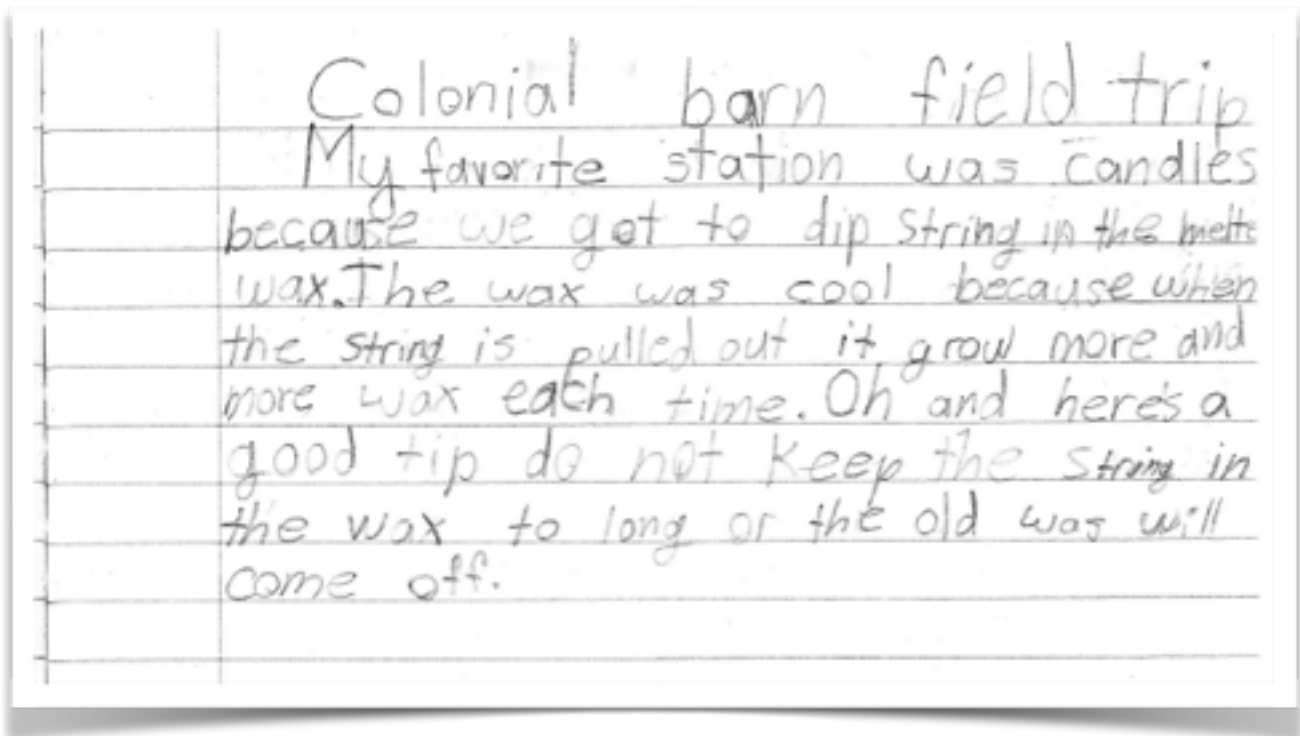 Colonial barn field trip
My favorite station was candles
because we got to dip string in the melte
wax. The wax was cool because when
the string is pulled out it grow more and
more wax each time. Oh and here's a
good tip do not keep the string in
the wax to long or the old was will
come off.